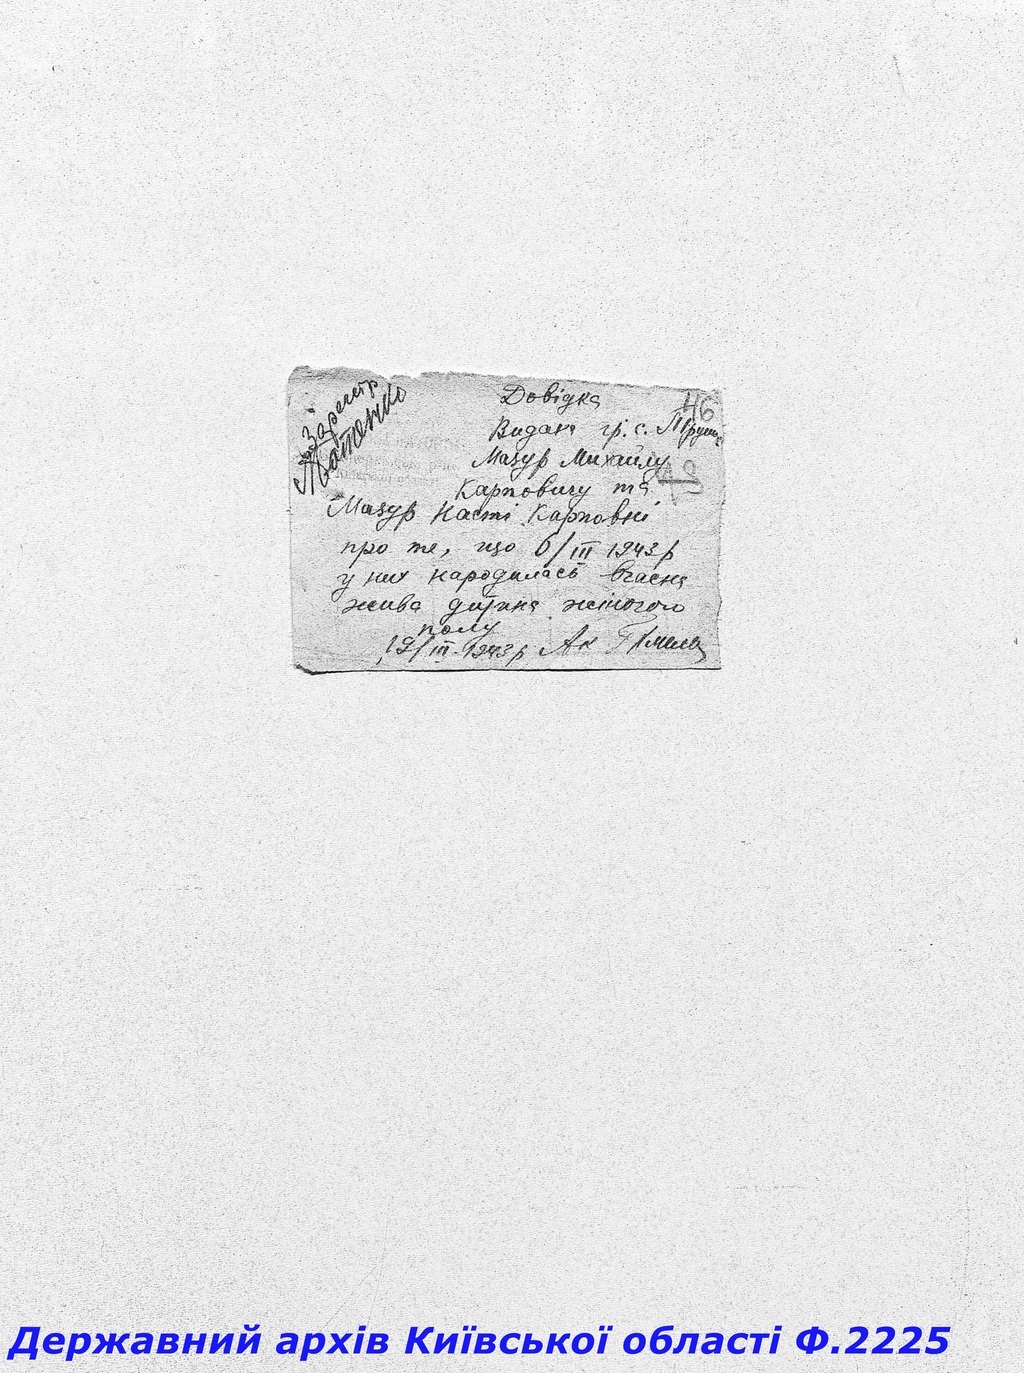 Зареєстр
46
Довідка
Видана гр. с. Трушк
Мазур Михайлу
Карповичу та
Мазур Насті Карповні
про те, що 6/III 1943 р
у них народилась вчасна
жива дитина жіночого
полу
19/III-1943 р Ак
Державний архів Київської області Ф.2225